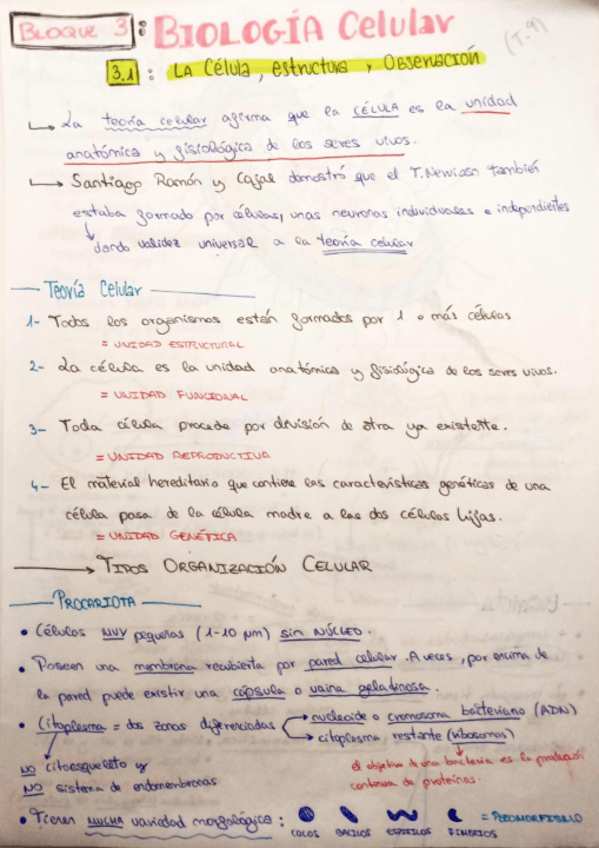 BLOQUE 3 : BIOLOGÍA Celular
(T.9)
3.1 : LA Célula, estructura y OBSERVACIÓN
La teoría celular afirma que la CÉLULA es la unidad
anatómica y fisiológica de los seres vivos.
Santiago Ramón y Cajal demostró que el T.Nervioso también
estaba formado por células, unas neuronas individuales e independientes
dando validez universal a la teoría celular
Teoría Celular
1- Todos los organismos están formados por 1 o más células
= UNIDAD ESTRUCTURAL
2- La célula es la unidad anatómica y fisiológica de los seres vivos.
= UNIDAD FUNCIONAL
3- Toda célula procede por división de otra ya existente.
= UNIDAD REPRODUCTIVA
4- El material hereditario que contiene las características genéticas de una
célula pasa de la célula madre a las dos células hijas.
= UNIDAD GENÉTICA
TIPOS ORGANIZACIÓN CELULAR
PROCARIOTA
• Células MUY pequeñas (1-10 µm) sin NÚCLEO.
• Poseen una membrana recubierta por pared celular. A veces, por encima de
la pared puede existir una cápsula o vaina gelatinosa.
• Citoplasma = dos zonas diferenciadas → nucleoide o cromosoma bacteriano (ADN)
→ citoplasma restante (ribosomas)
NO citoesqueleto y
NO sistema de endomembranas
el objetivo de una bacteria es la producción
continua de proteínas.
• Tienen MUCHA variedad morfológica :
COCOS BACILOS ESPIRILOS VIBRIOS = PLEOMORFISMO